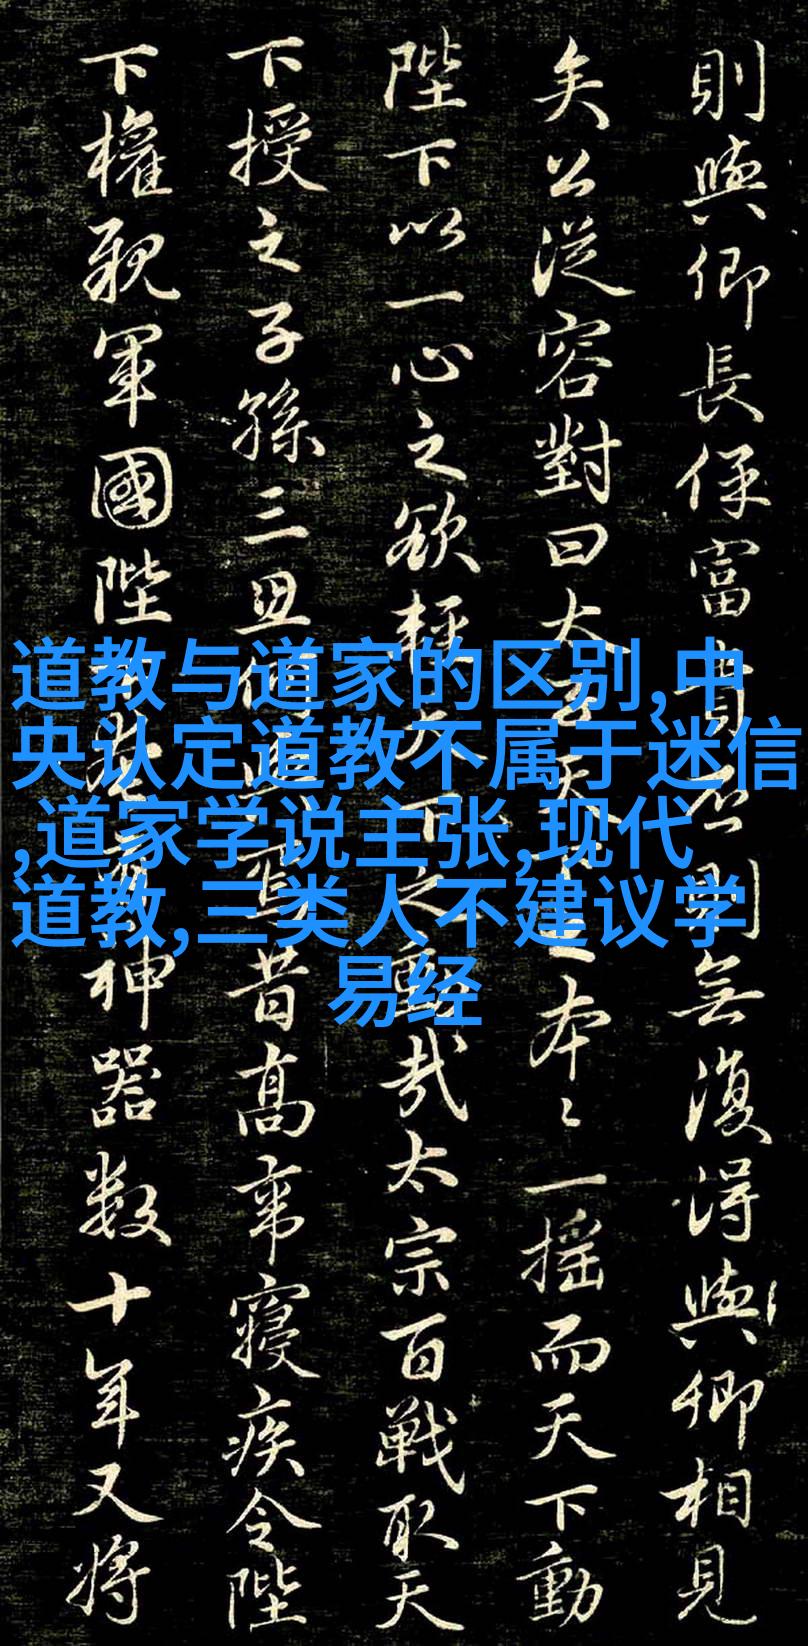 道教与道家的区别,中
央认定道教不属于迷信
,道家学说主张,现代
道教,三类人不建议学
易经
則與卿長保富貴否則無復得與卿相見
矣公從容對曰太天之本〻一搖而天下動
陛下以一心之欲輕天下之動哉太宗百戰取天
下授之子孫三焉昔高宗寢疾令陛
下權親軍國陛神器數十年又將